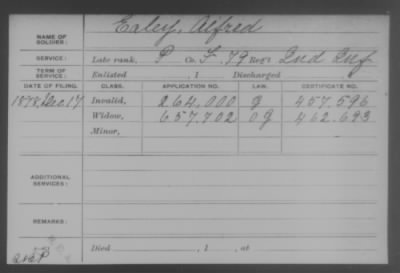 Ealey, Alfred
NAME OF SOLDIER:
SERVICE: Late rank, P Co. F. 79 Reg't Ind Inf
TERM OF SERVICE: Enlisted , 1 Discharged
DATE OF FILING. CLASS. APPLICATION NO. LAW. CERTIFICATE NO.
1878, Dec. 17 Invalid, 264,000 G 457.596
Widow, 657.702 O G 462.693
Minor,
ADDITIONAL SERVICES:
REMARKS:
Died , 1 , at